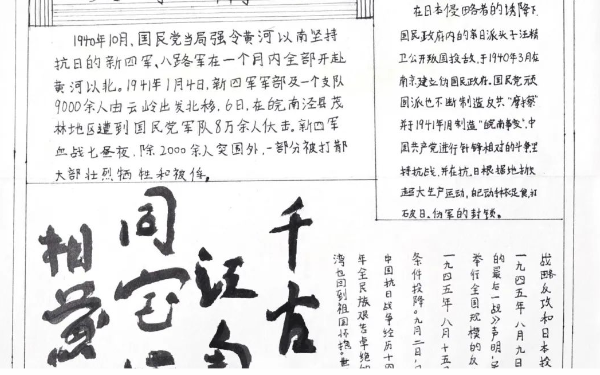 1940年10月,国民党当局强令黄河以南坚持
抗日的新四军、八路军在一个月内全部开赴
黄河以北。1941年1月4日,新四军军部及一个支队
9000余人由云岭出发北移,6日,在皖南泾县茂
林地区遭到国民党军队8万余人伏击。新四军
血战七昼夜,除2000余人突围外,一部分被打散
大部壮烈牺牲和被俘。
在日本侵略者的诱降下,
国民政府内的亲日派头子汪精
卫公开叛国投敌,于1940年3月在
南京建立伪国民政府。国民党顽
固派也不断制造反共"摩擦"
并于1941年1月制造"皖南事变"。中
国共产党进行针锋相对的斗争坚
持抗战,并在抗日根据地掀
起大生产运动,自己动手丰衣足食,打
破日、伪军的封锁。
千古
江南
同室
相煎
战略反攻和日本投
一九四五年八月九日
的最后一战》声明,
举行全国规模的反
一九四五年八月十五
条件投降。九月二日,
中国抗日战争经历十四
年全民族艰苦卓绝的
湾也回到祖国怀抱。